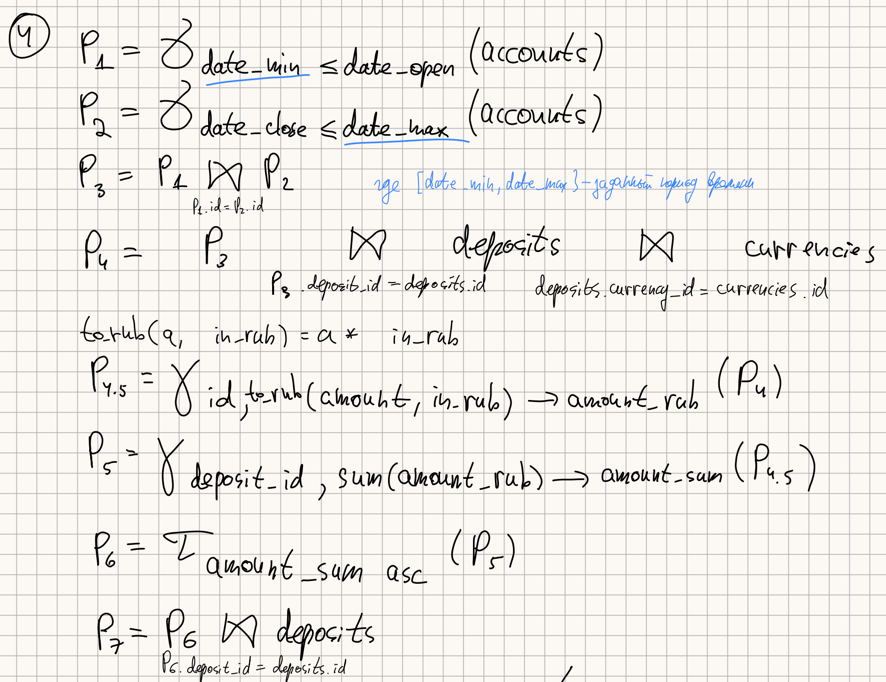 4
P1 = σ date_min ≤ date_open (accounts)
P2 = σ date_close ≤ date_max (accounts)
P3 = P1 ⋈ P2
P1.id = P2.id
где [date_min, date_max] - заданный период времени
P4 = P3 ⋈ deposits ⋈ currencies
P3.deposit_id = deposits.id deposits.currency_id = currencies.id
to_rub(a, in_rub) = a * in_rub
P4.5 = γ id, to_rub(amount, in_rub) → amount_rub (P4)
P5 = γ deposit_id, sum(amount_rub) → amount_sum (P4.5)
P6 = τ amount_sum asc (P5)
P7 = P6 ⋈ deposits
P6.deposit_id = deposits.id